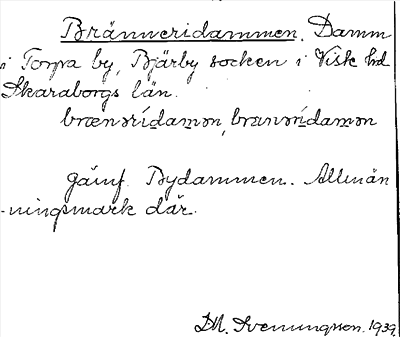 Bränneridammen. Damm
i Torpa by, Bjärby socken i Visk hd
Skaraborgs län.
brænərídamən, brænərídamən
Jämf. Bydammen. Allmän
-ningsmark där.
M. Svenungson. 1939